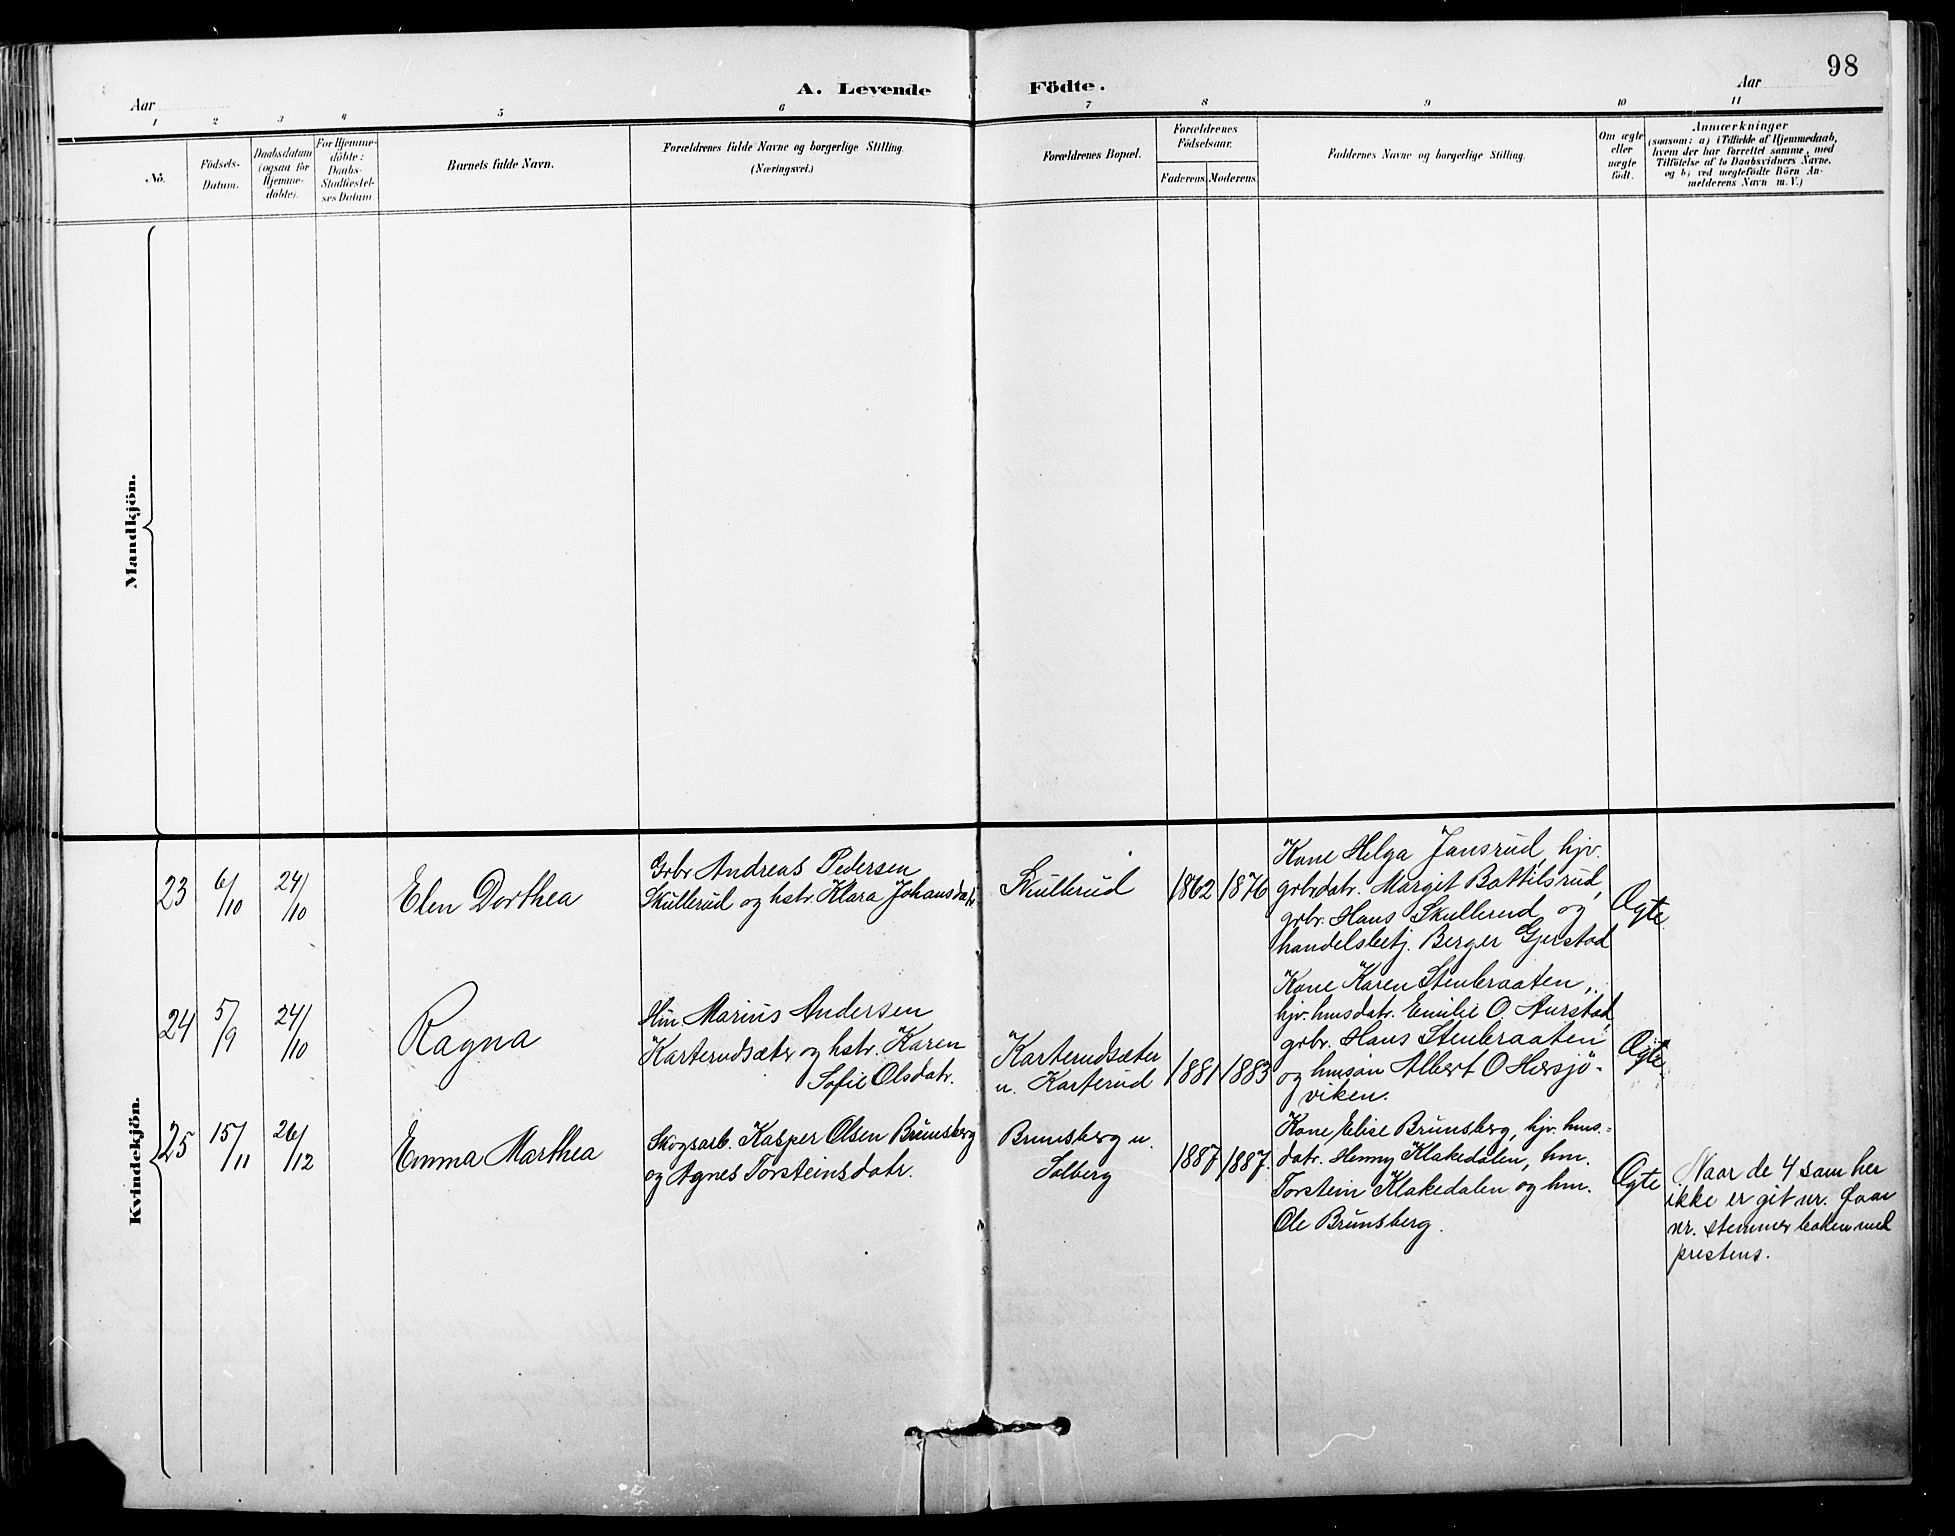 98
A. Levende Födte.
Aar
Aar
1 2 3 4 5 6 7 8 9 10 11
No.
Födsels-
Datum.
Daabsdatum
(ogsaa for
Hjemme-
döbte).
For Hjemme-
döbte:
Daabs-
Stadfæstel-
ses Datum.
Barnets fulde Navn.
Forældrenes fulde Navne og borgerlige Stilling.
(Næringsvei.)
Forældrenes Bopæl.
Forældrenes
Födselsaar.
Faderens. Moderens.
Faddernes Navne og borgerlige Stilling.
Om ægte
eller
uægte
födt.
Anmærkninger
(saasom: a) i Tilfælde af Hjemmedaab,
hvem der har forrettet samme, med
Tilföielse af to Daabsvidners Navne,
og b) ved uægtefödte Börn An-
melderens Navn m. V.)
Mandkjön.
Kvindekjön.
23
6/10
24/10
Elen Dorthea
Grbr Andreas Pedersen
Skullerud og hstr. Klara Johansdatr
Skullerud
1862 1876
Kone Helga Jansrud, hjv.
grbrdatr. Margit Bottilsrud,
grbr. Hans Skullerud og
handelsbetj. Berger Gjerstad
Ægte
24
5/9
24/10
Ragna
Hm. Marius Andersen
Karterudsæter og hstr. Karen
Sofie Olsdatr.
Karterudsæter
u. Karterud
1881 1883
Kone Karen Stenbraaten,
hjv. husdatr. Emilie O. Aurstad
grbr. Hans Stenbraaten
og hmsön Albert O Hersjö-
viken.
Ægte
25
15/11
26/12
Emma Marthea
Skogsarb. Kasper Olsen Brunsberg
og Agnes Torsteinsdatr.
Brunsberg u.
Solberg
1887 1887.
Kone Elise Brunsberg, hjv. hus-
datr. Henny Klakedalen, hm.
Torstein Klakedalen og hm.
Ole Brunsberg.
Ægte
Naar de 4 som her
ikke er git nr. faar
nr. stemmer boken med
prestens.